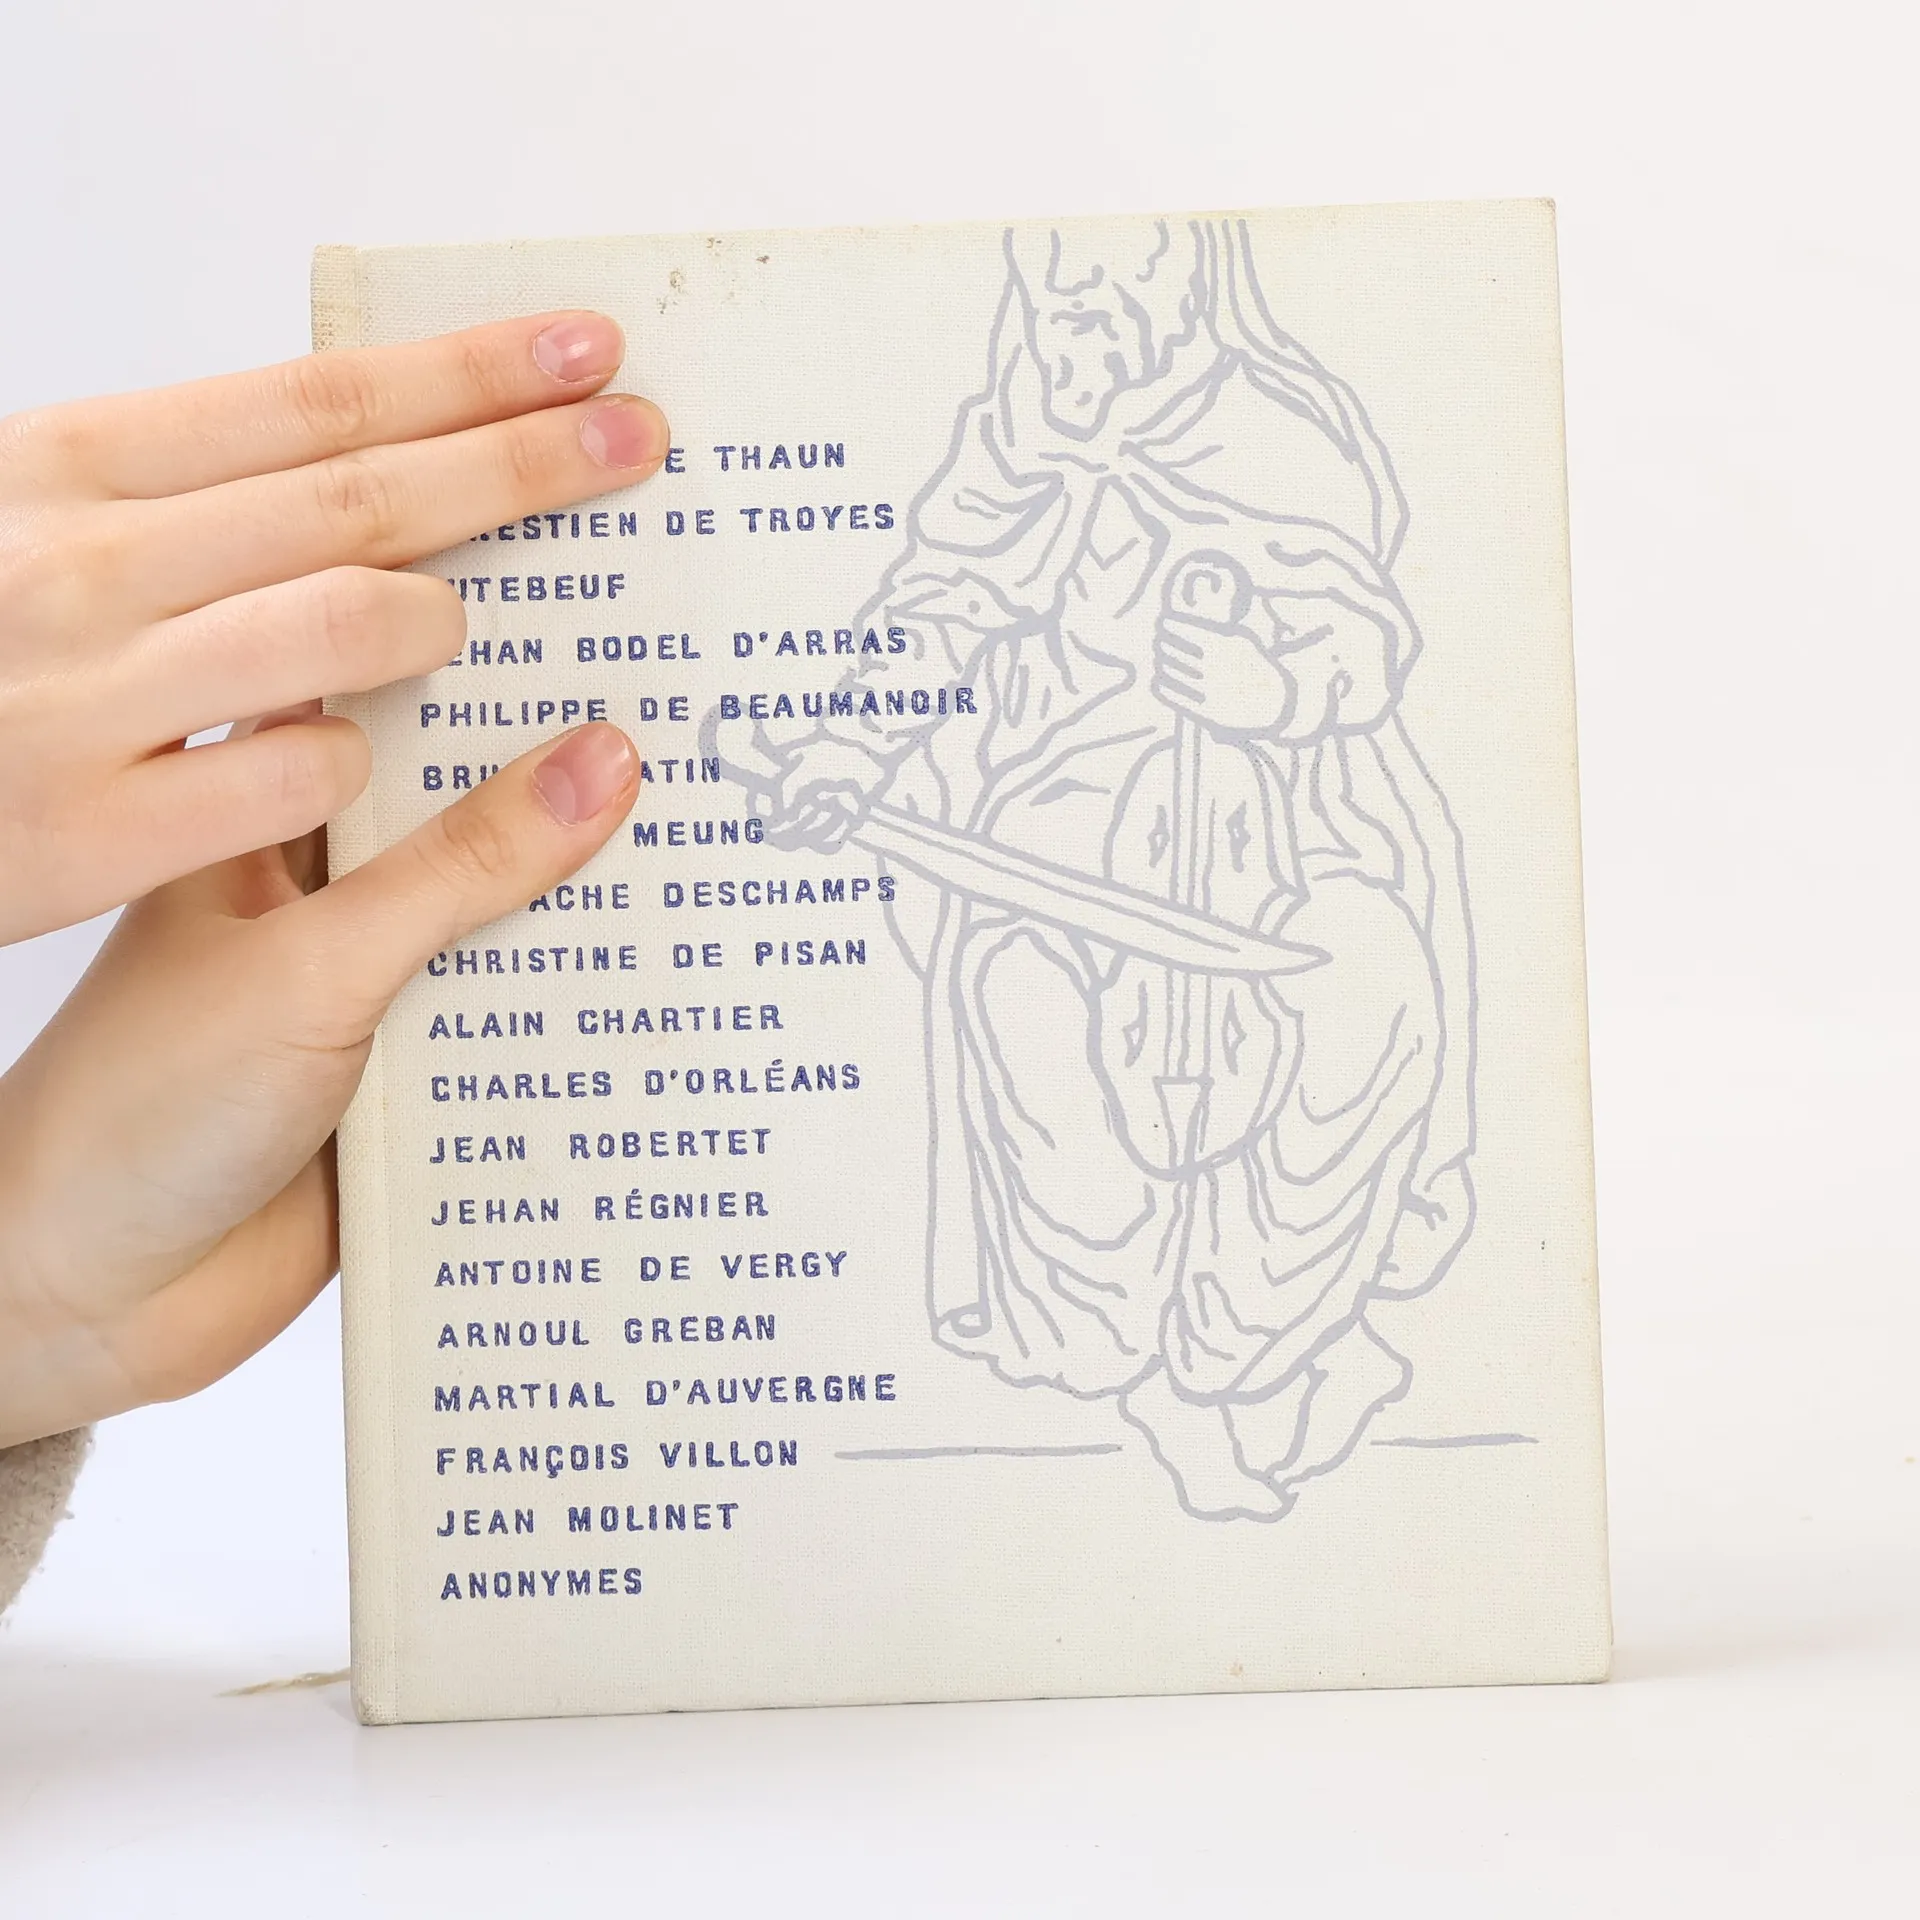 THAUN
DE TROYES
JEHAN BODEL D'ARRAS
PHILIPPE DE BEAUMANOIR
MEUNG
DESCHAMPS
CHRISTINE DE PISAN
ALAIN CHARTIER
CHARLES D'ORLÉANS
JEAN ROBERTET
JEHAN RÉGNIER
ANTOINE DE VERGY
ARNOUL GREBAN
MARTIAL D'AUVERGNE
FRANÇOIS VILLON
JEAN MOLINET
ANONYMES